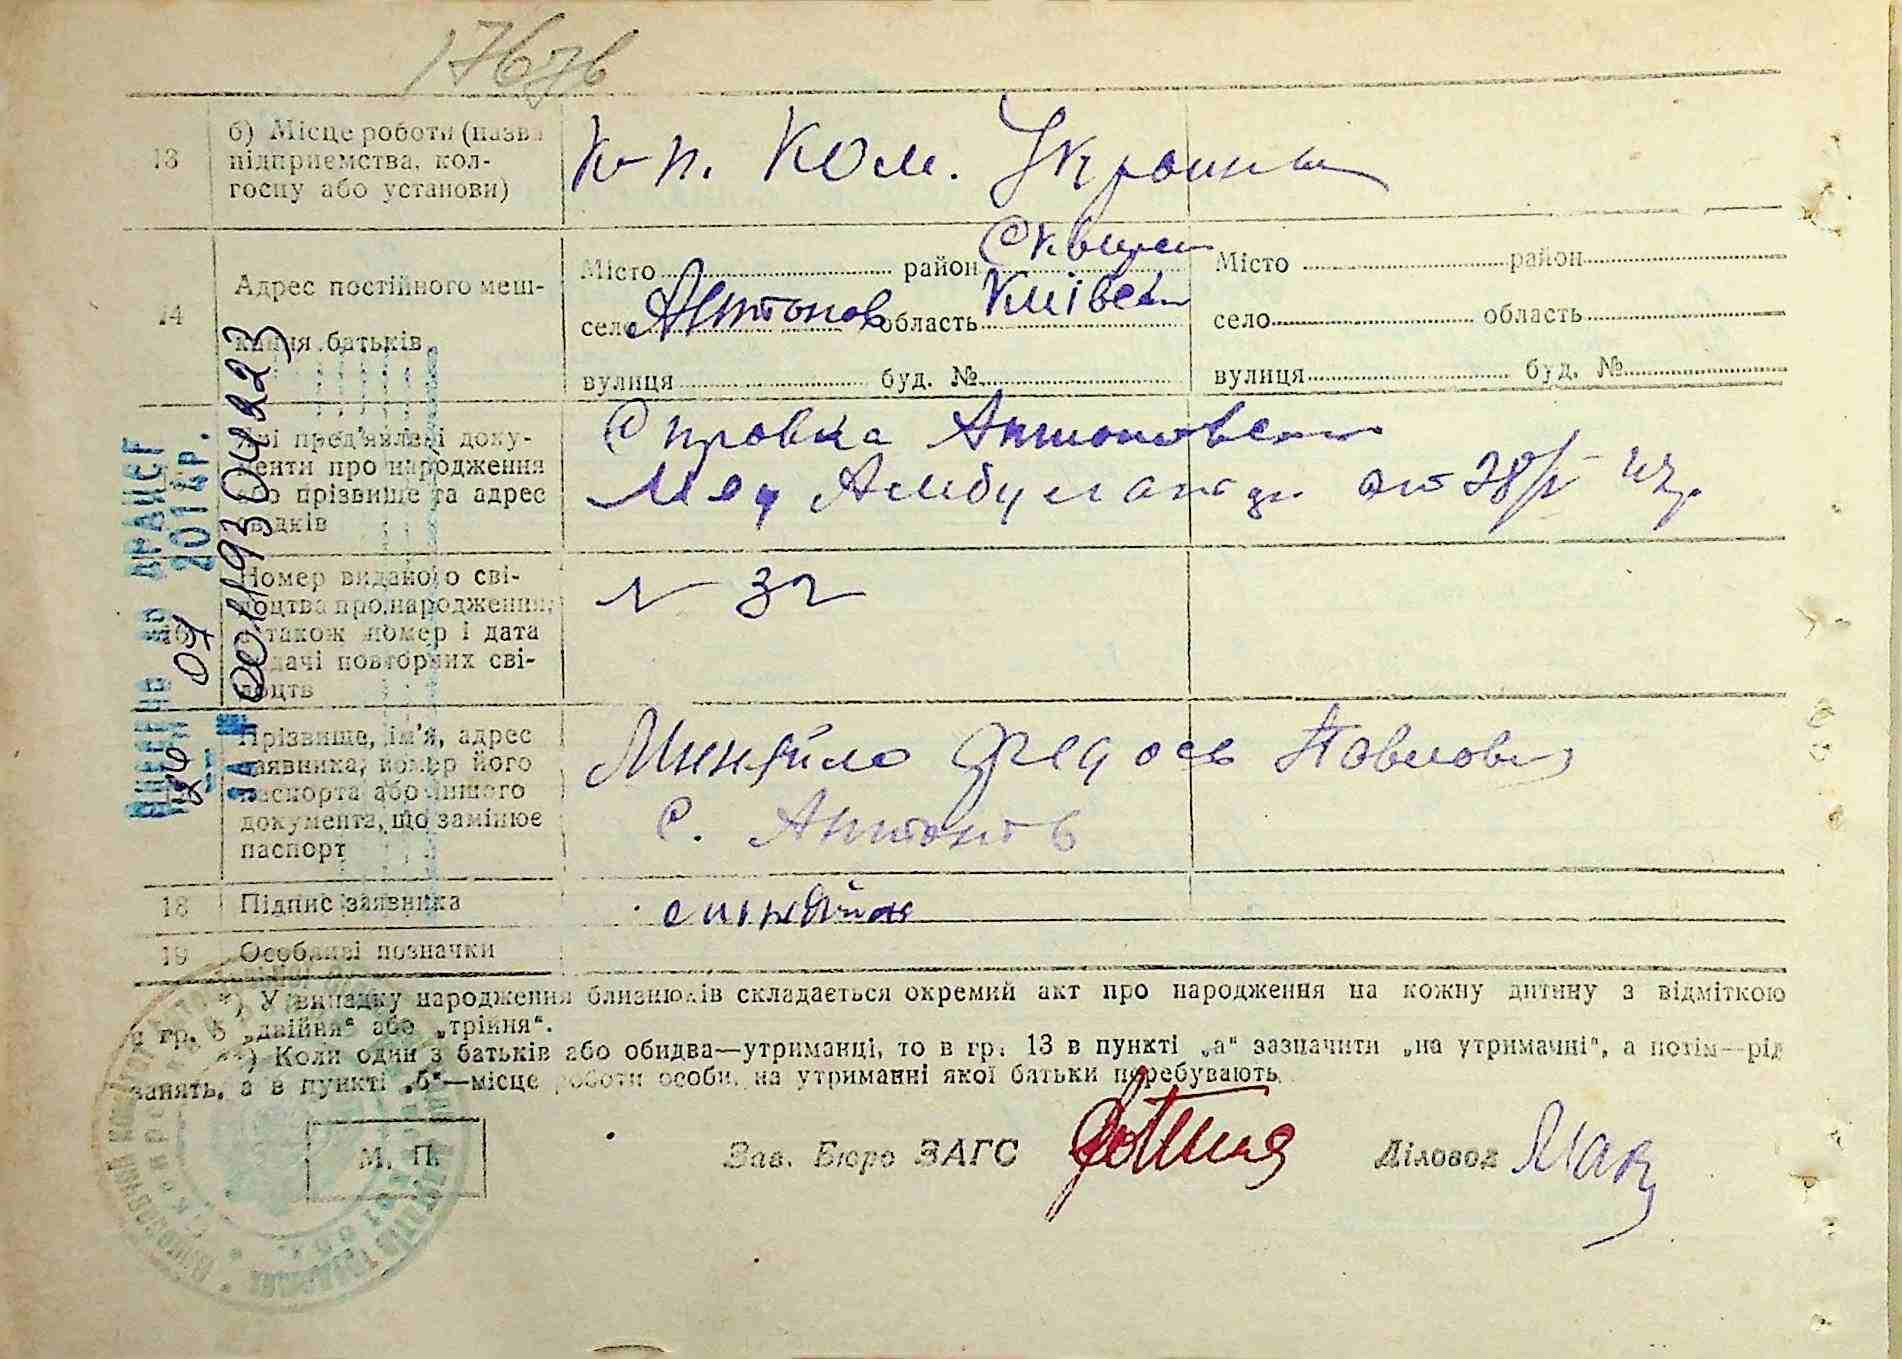 13 б) Місце роботи (назва
підприємства, кол-
госпу або установи)
к-п. Ком. України
14 Адрес постійного меш-
кання батьків
Місто район Сквирс
село Антонов область Київськ
вулиця буд. №
Місто район
село область
вулиця буд. №
Які пред'явлені доку-
менти про народження
або прізвище та адрес
свідків
Справка Антоновськ
Мед Амбулатор от 28/V
16 Номер виданого сві-
доцтва про народження,
а також номер і дата
видачі повторних сві-
доцтв
N 32
Прізвище, ім'я, адрес
заявника, номер його
паспорта або іншого
документа, що замінює
паспорт
Миняйло Федось Павлов
с. Антонів
18 Підпис заявника
19 Особливі позначки
*) У випадку народження близнюків складається окремий акт про народження на кожну дитину з відміткою
в гр. 5 „двійня“ або „трійня“.
**) Коли один з батьків або обидва—утриманці, то в гр. 13 в пункті „а“ зазначити „на утриманні“, а потім—рід
занять, а в пункті „б“—місце роботи особи, на утриманні якої батьки перебувають.
М. П.
Зав. Бюро ЗАГС
Діловод
ВНЕСЕНО ДО ДРАЦСГ
07 2014Р.
ЗА № 004119304223